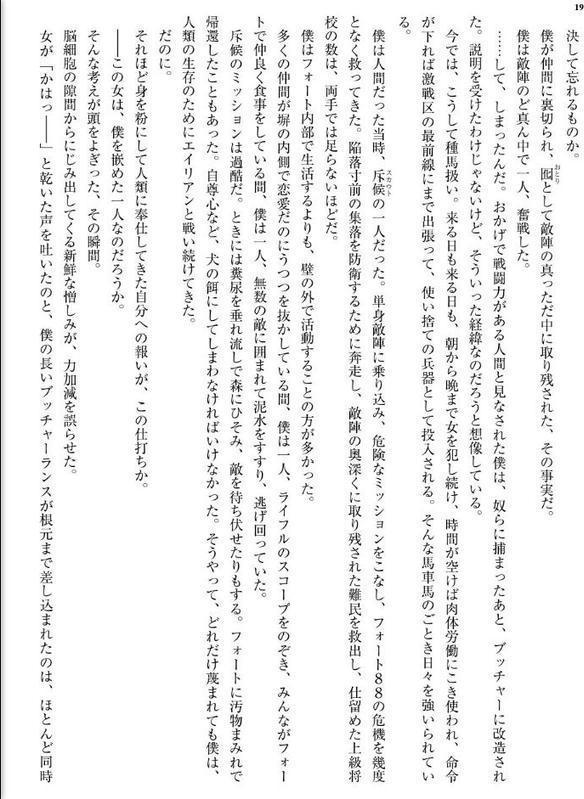 19
決して忘れるものか。
僕が仲間に裏切られ、囮として敵陣の真っただ中に取り残された、その事実だ。
おとり
僕は敵陣のど真ん中で一人、奮戦した。
……して、しまったんだ。おかげで戦闘力がある人間と見なされた僕は、奴らに捕まったあと、ブッチャーに改造され
た。説明を受けたわけじゃないけど、そういった経緯なのだろうと想像している。
今では、こうして種馬扱い。来る日も来る日も、朝から晩まで女を犯し続け、時間が空けば肉体労働にこき使われ、命令
が下れば激戦区の最前線にまで出張って、使い捨ての兵器として投入される。そんな馬車馬のごとき日々を強いられてい
る。
僕は人間だった当時、斥候の一人だった。単身敵陣に乗り込み、危険なミッションをこなし、フォート８８の危機を幾度
スカウト
となく救ってきた。陥落寸前の集落を防衛するために奔走し、敵陣の奥深くに取り残された難民を救出し、仕留めた上級将
校の数は、両手では足らないほどだ。
僕はフォート内部で生活するよりも、壁の外で活動することの方が多かった。
多くの仲間が塀の内側で恋愛だのにうつつを抜かしている間、僕は一人、ライフルのスコープをのぞき、みんながフォー
トで仲良く食事をしている間、僕は一人、無数の敵に囲まれて泥水をすすり、逃げ回っていた。
斥候のミッションは過酷だ。ときには糞尿を垂れ流しで森にひそみ、敵を待ち伏せたりもする。フォートに汚物まみれで
帰還したこともあった。自尊心など、犬の餌にしてしまわなければいけなかった。そうやって、どれだけ蔑まれても僕は、
人類の生存のためにエイリアンと戦い続けてきた。
だのに。
それほど身を粉にして人類に奉仕してきた自分への報いが、この仕打ちか。
――この女は、僕を嵌めた一人なのだろうか。
そんな考えが頭をよぎった、その瞬間。
脳細胞の隙間からにじみ出してくる新鮮な憎しみが、力加減を誤らせた。
女が「かはっ――」と乾いた声を吐いたのと、僕の長いブッチャーランスが根元まで差し込まれたのは、ほとんど同時